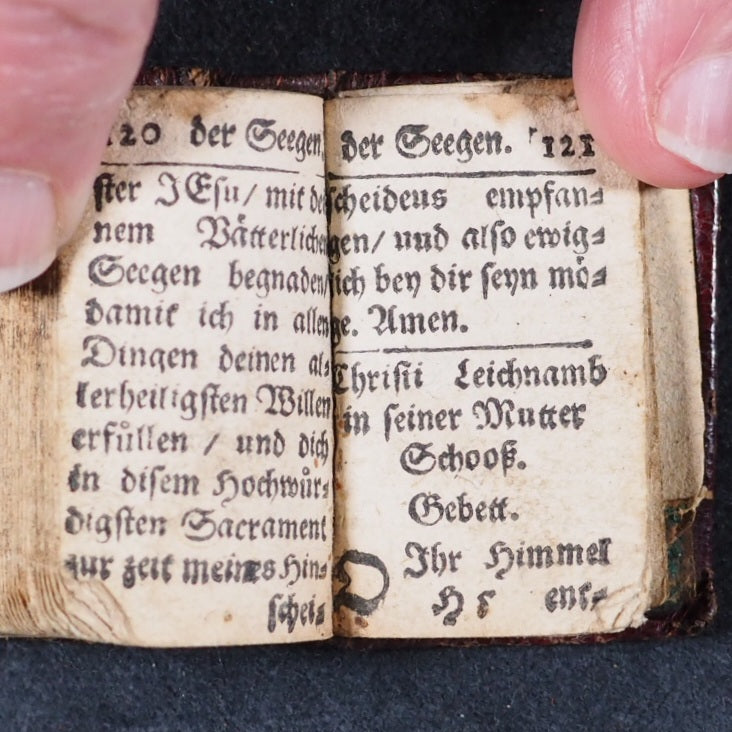 120 der Seegen,
ster JEsu/ mit dei
nem Vätterlichen
Seegen begnaden/
damit ich in allen
Dingen deinen al⸗
lerheiligsten Willen
erfüllen / und dich
in disem Hochwür⸗
digsten Sacrament
zur zeit meines Hin⸗
schei⸗
der Seegen. 121
scheidens empfan⸗
gen/ und also ewig⸗
lich bey dir seyn mö⸗
ge. Amen.
Christi Leichnamb
in seiner Mutter
Schooß.
Gebett.
O Ihr Himmel
H 5 ent⸗